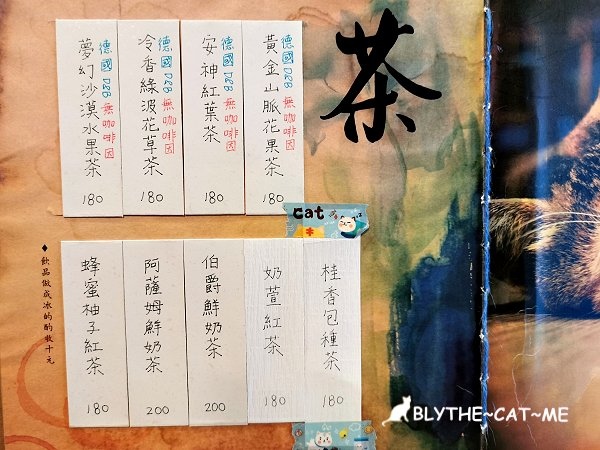 茶
德國 D&B 無咖啡因
黃金山脈花果茶
180
德國 D&B 無咖啡因
安神紅葉茶
180
德國 D&B 無咖啡因
冷香綠波花草茶
180
德國 D&B 無咖啡因
夢幻沙漠水果茶
180
cat
桂香包種茶
180
奶萱紅茶
180
伯爵鮮奶茶
200
阿薩姆鮮奶茶
200
蜂蜜柚子紅茶
180
◆飲品做成冰的酌收十元
BLYTHE~CAT~ME